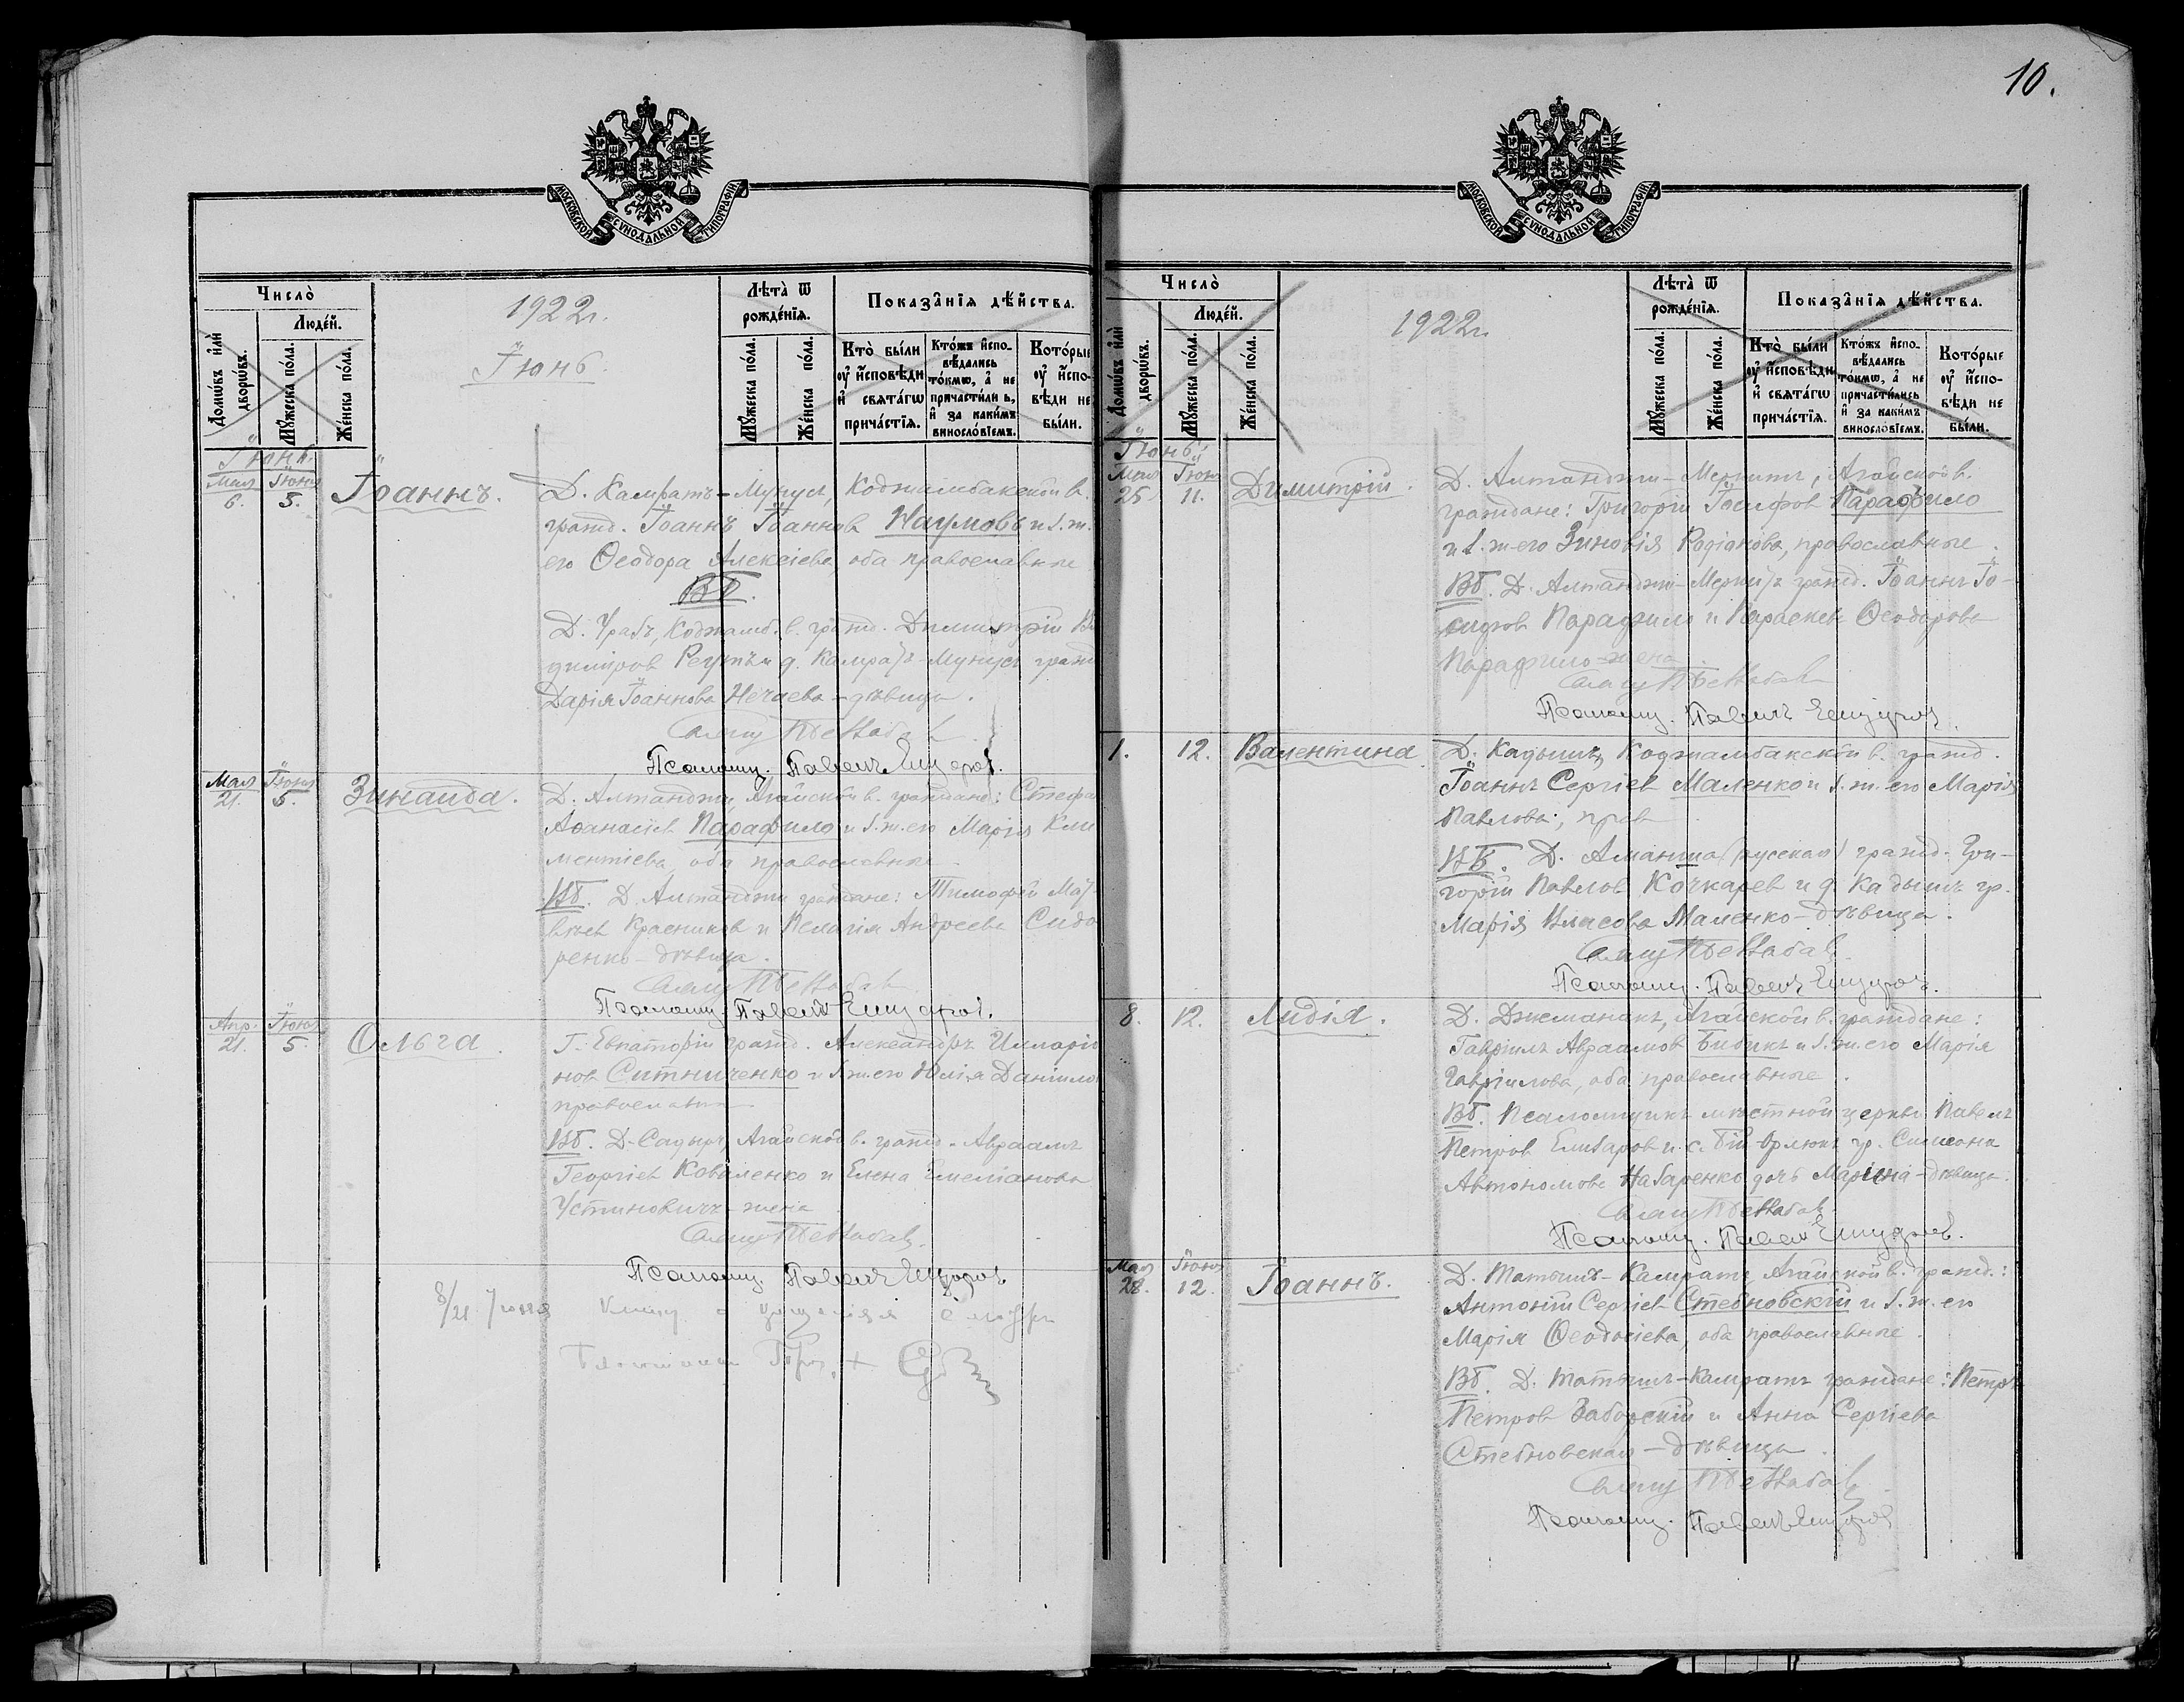 10.
МОСКОВСКОЙ СѴНОДАЛЬНОЙ ТИПОГРАФІИ
Число̀
Людей.
Домѡвъ и҆лѝ дворѡвъ.
Мꙋжеска по́ла.
Же́нска по́ла.
1922 г.
Іюнь.
Лѣта̀ ѿ рожде́нїѧ.
Мꙋжеска по́ла.
Же́нска по́ла.
Показа̑нїѧ дѣ́йства.
Кто̀ бы́ли оу҆ и҆сповѣди и҆ свята́гѡ прича́стїѧ.
Кто́жъ и҆спо-
вѣдались то́кмѡ, а҆ не причастили ь, и҆ за каки́мъ винослові́емъ.
Кото́рые оу҆ и҆спо-
вѣди не бы́ли.
Іюнь.
Мая 6. Іюня 5. Іоаннъ.
Д. Камратъ-Мунусъ, Коджамбакской в.
гражд. Іоаннъ Іоаннов Наумовъ и з. ж.
его Ѳеодора Алексіева, оба православные
ВБ.
Д. Урабъ, Коджамб. в. гражд. Димитрій
Регутъ и д. Камратъ-Мунусъ гражд
Дарія Іоаннова Нечаева - дѣвица.
Псаломщ. Павелъ
Мая 21. Іюня 5. Зинаида.
Д. Алтанджи, Агайской в. граждане: Стефа
Аѳанасіев Парафило и з. ж. его Марія Кли
ментіева, оба православные.
ВБ. Д. Алтанджи граждане: Тимофей Мат
вѣев Красников и Пелагія Андреева Сидо
ренко - дѣвица.
Псаломщ. Павелъ
Апр. 21. Іюня 5. Ольга.
Г. Евпаторіи гражд. Александръ Илларіо
нов Ситниченко и з. ж. его Юлія Даніило
православн
ВБ. Д. Садыръ, Агайской в. гражд. Авраамъ
Георгіев Коваленко и Елена Емеліанова
Устиновичъ - жена
Псаломщ. Павелъ
8/21 Іюня
Число̀
Людей.
Домѡвъ и҆лѝ дворѡвъ.
Мꙋжеска по́ла.
Же́нска по́ла.
1922 г.
Лѣта̀ ѿ рожде́нїѧ.
Мꙋжеска по́ла.
Же́нска по́ла.
Показа̑нїѧ дѣ́йства.
Кто̀ бы́ли оу҆ и҆сповѣди и҆ свята́гѡ прича́стїѧ.
Кто́жъ и҆спо-
вѣдались то́кмѡ, а҆ не причасти́лись и҆ за каки́мъ винословіемъ.
Кото́рые оу҆ и҆спо-
вѣди не бы́ли.
Іюнь
Мая 25. Іюня 11. Димитрій.
Д. Алтанджи-Меркитъ, Агайской в.
граждане: Григорій Іосифов Парафило
и з. ж. его Зиновія Родіонова, православные.
ВБ. Д. Алтанджи-Меркитъ гражд. Іоаннъ Іо-
сифов Парафило и Параскева Ѳеодорова
Парафило - жена
Псаломщ. Павелъ
1. 12. Валентина.
Д. Кадышъ, Коджамбакской в. гражд.
Іоаннъ Сергіев Маленко и з. ж. его Марія
Павлова, прав
ВБ. Д. Аманша (русская) гражд. Гри-
горій Павлов Кочкарев и д. Кадышъ гр.
Марія Власова Маленко - дѣвица.
Псаломщ. Павелъ
8. 12. Лидія.
Д. Джеманакъ, Агайской в. граждане:
Гавріилъ Авраамов Бибикъ и з. ж. его Марія
Гавріилова, оба православные.
ВБ. Псаломщикъ мѣстной церкви Павелъ
Петров и с. Бій-Орлюкъ гр. Симеона
Автономова Набаренко дочь Марина - дѣвица.
Псаломщ. Павелъ
Мая 28. Іюня 12. Іоаннъ.
Д. Татышъ-Камратъ, Агайской в. гражд.:
Антоній Сергіев Стебновскій и з. ж. его
Марія Ѳеодосіева, оба православные.
ВБ. Д. Татышъ-Камратъ граждане: Петръ
Петров Заборскій и Анна Сергіева
Стебновская - дѣвица.
Псаломщ. Павелъ